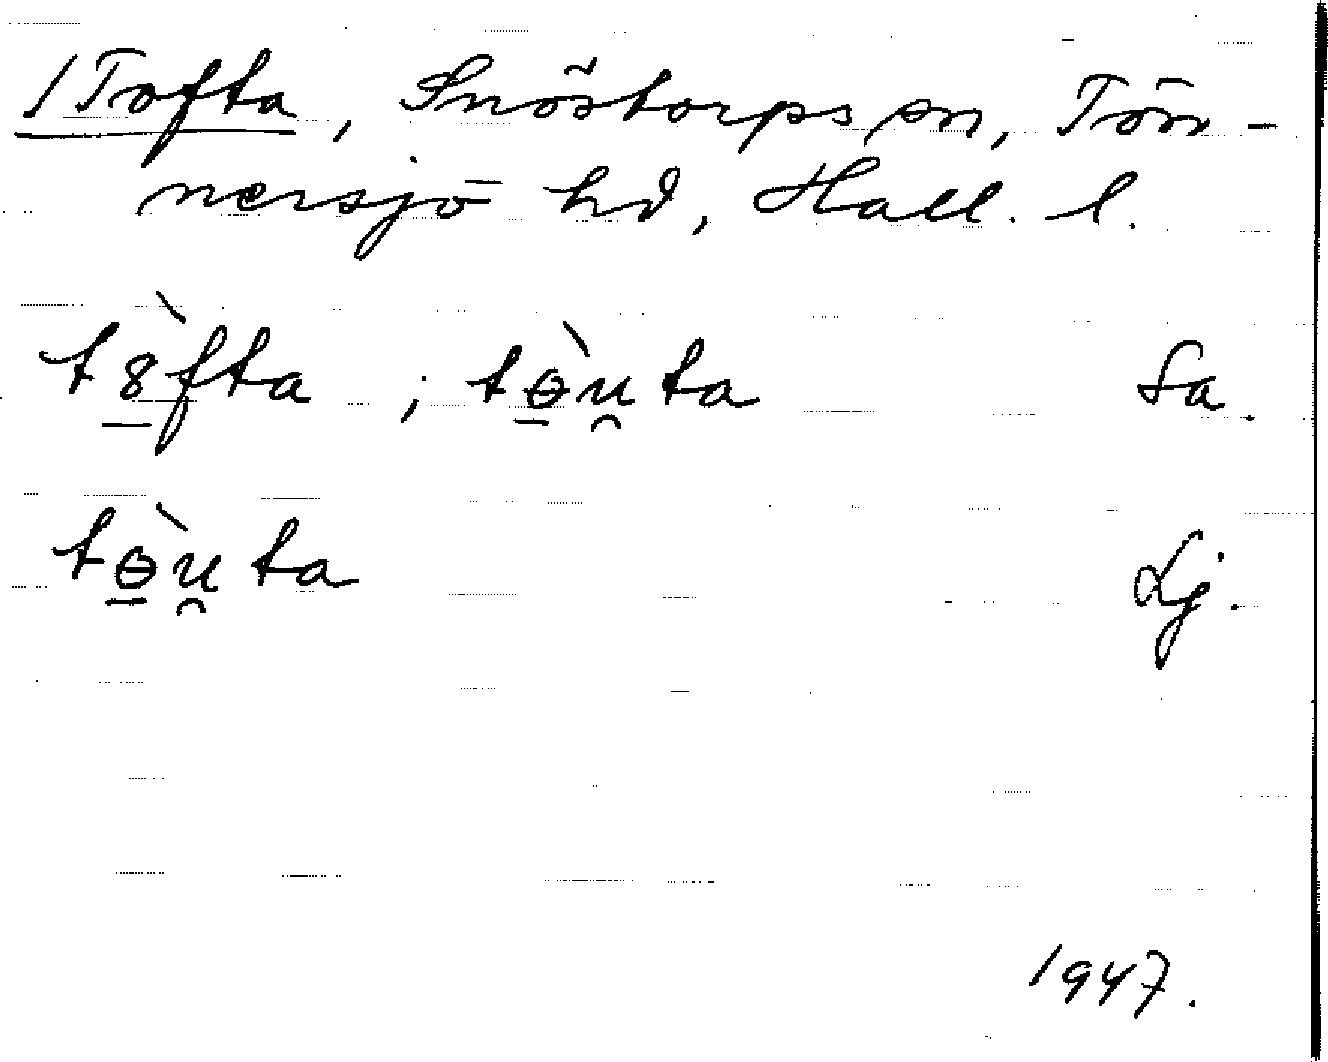 1 Tofta, Snöstorps sn, Tön-
nersjö hd, Hall. l.
t8̲̀fta ; tɵ̲̀u̯ta Sa.
tɵ̲̀u̯ta Lj.
1947.